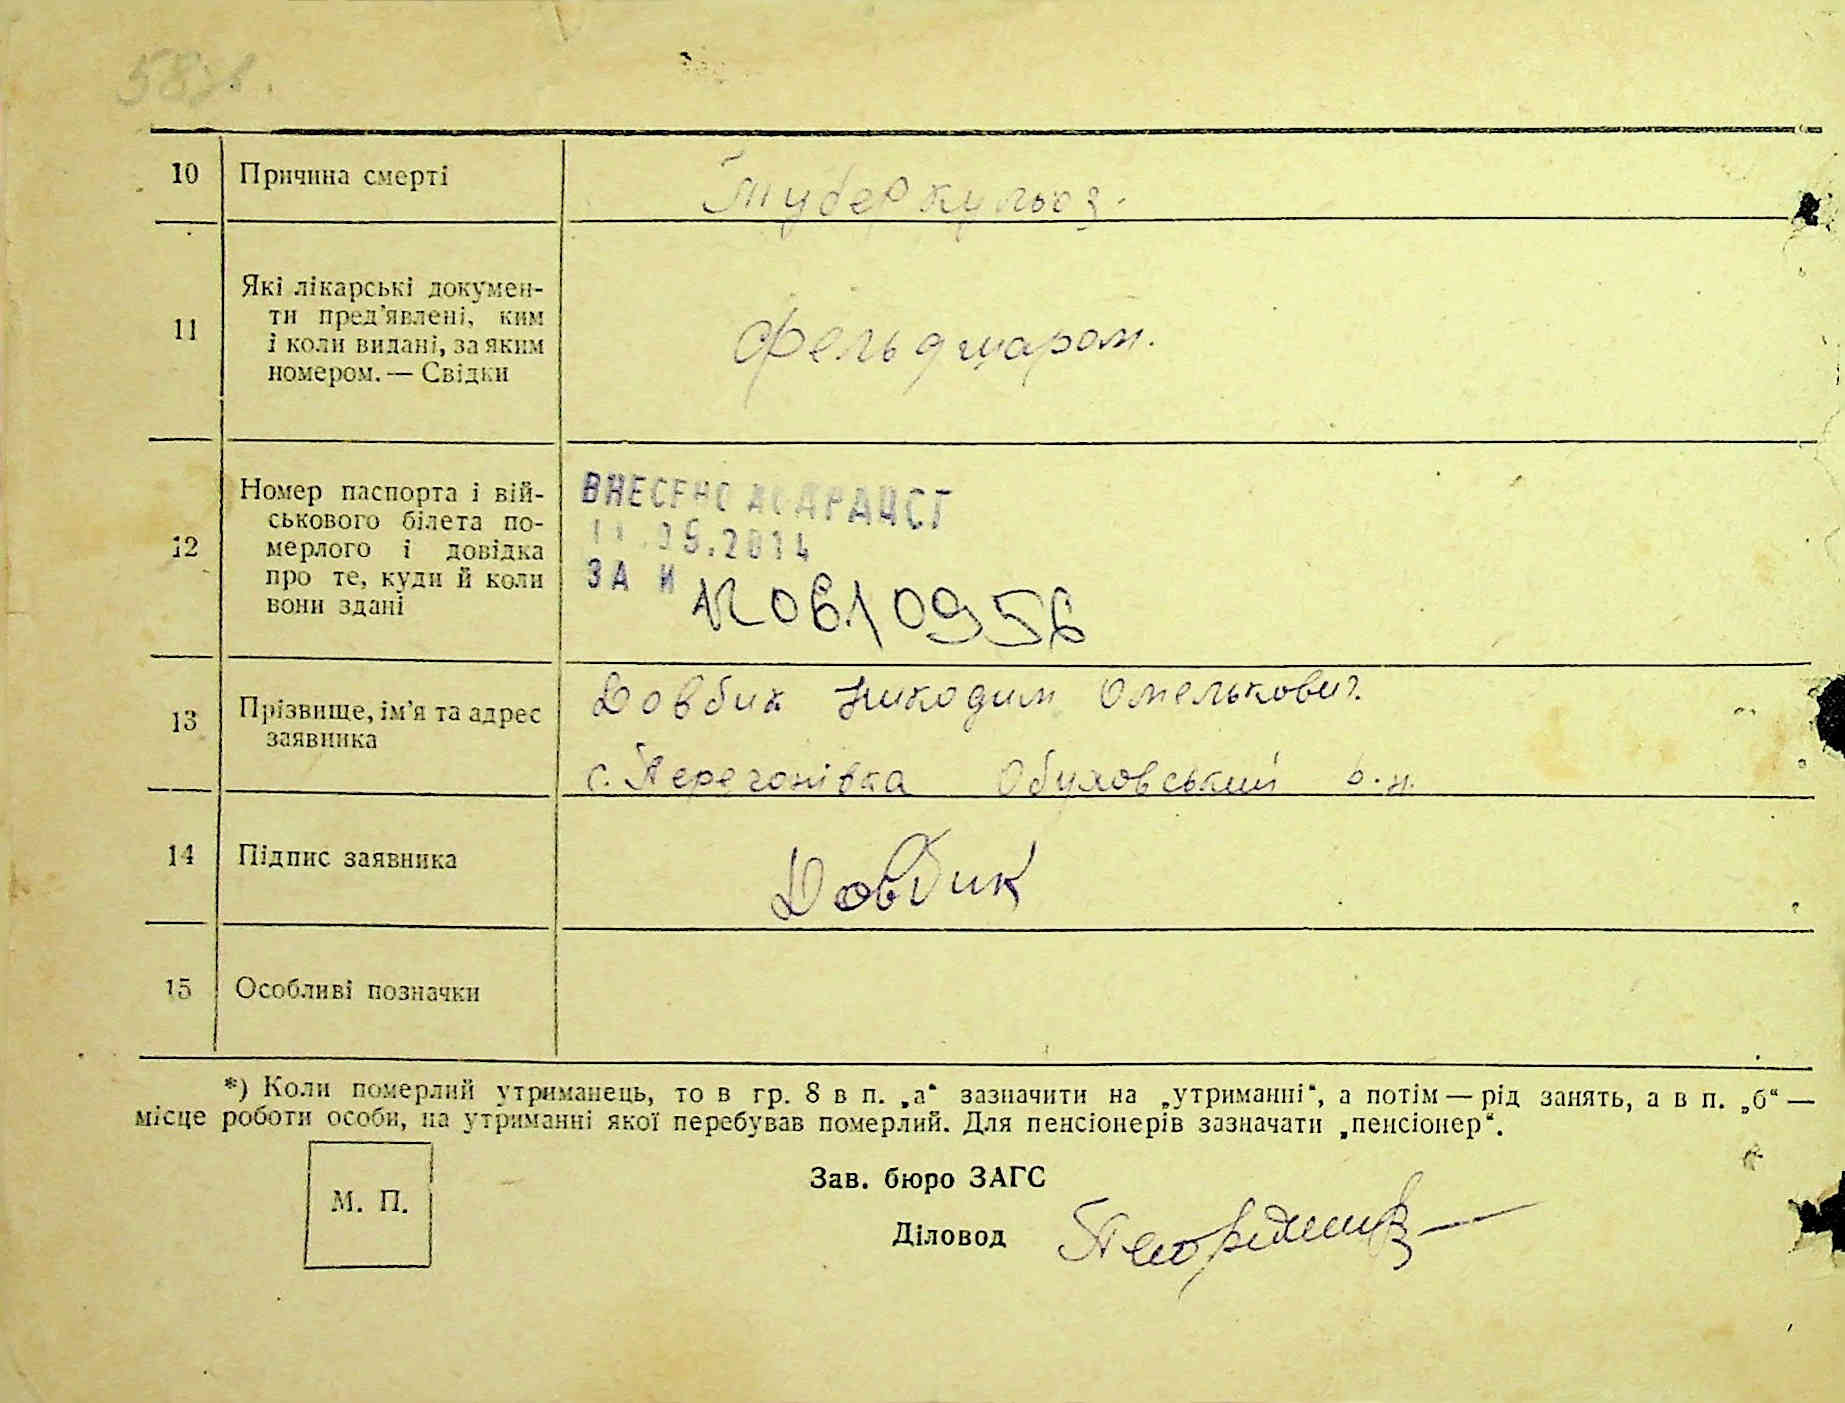 10 Причина смерті Туберкульоз.
11 Які лікарські докумен-
ти пред'явлені, ким
і коли видані, за яким
номером. — Свідки
Фельдшаром.
12 Номер паспорта і вій-
ськового білета по-
мерлого і довідка
про те, куди й коли
вони здані
ВНЕСЕНО ДО ДРАЦСГ
11.05.2014
ЗА N
N 0610956
13 Прізвище, ім'я та адрес
заявника
Довбик Никодим Омелькович
с. Перегонівка Обуховський р.н.
14 Підпис заявника Довбик
15 Особливі позначки
*) Коли померлий утриманець, то в гр. 8 в п. „а“ зазначити на „утриманні“, а потім — рід занять, а в п. „б“ —
місце роботи особи, на утриманні якої перебував померлий. Для пенсіонерів зазначати „пенсіонер“.
М. П.
Зав. бюро ЗАГС
Діловод